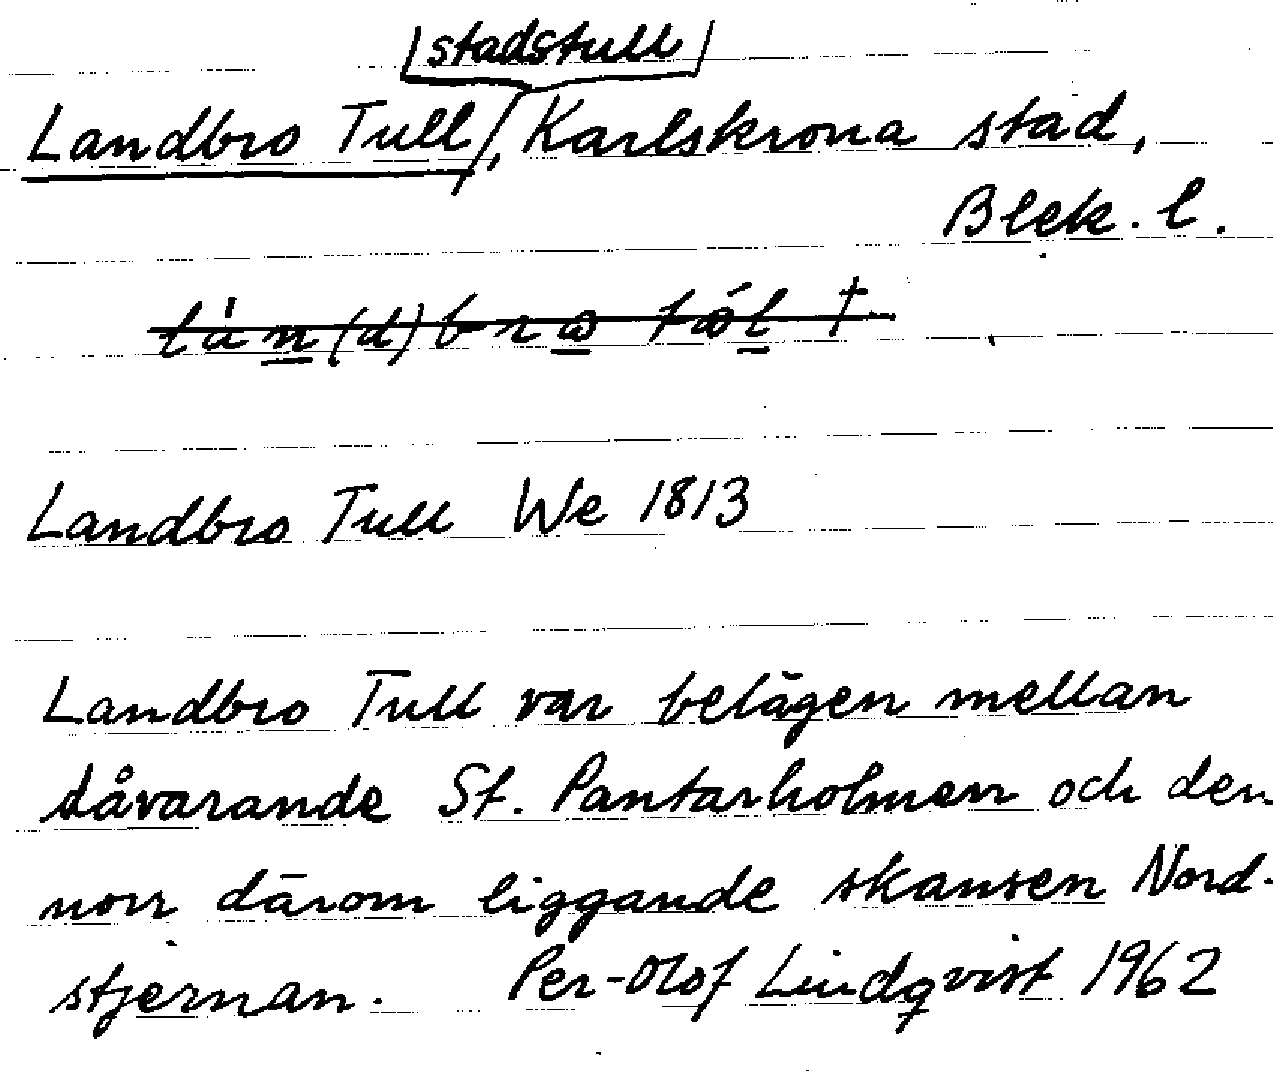 stadstull
Landbro Tull, Karlskrona stad,
Blek. l.
Landbro Tull We 1813
Landbro Tull var belägen mellan
dåvarande St. Pantarholmen och den
norr därom liggande skansen Nord-
stjernan. Per-Olof Lindqvist 1962